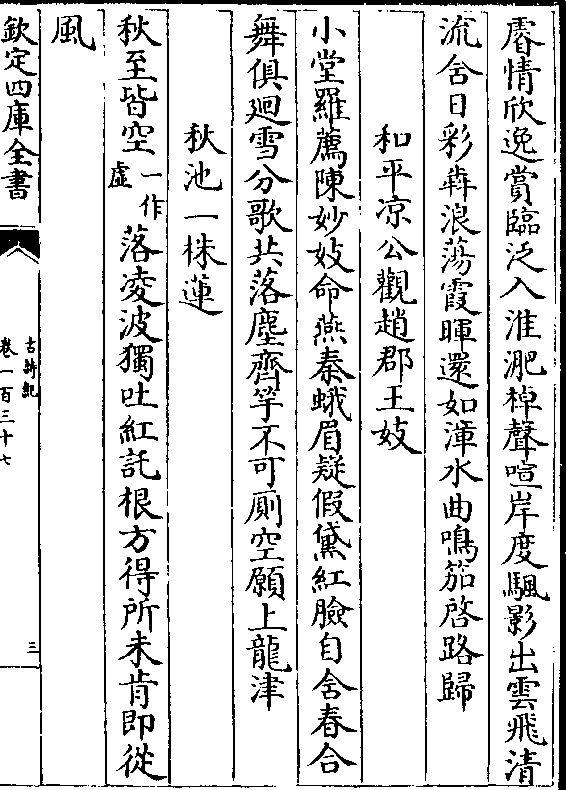 睿情欣逸賞臨泛入淮淝棹聲喧岸度颿影出雲飛清
流含日彩奔浪蕩霞暉還如渾水曲鳴笳啓路歸
和平凉公觀趙郡王妓
小堂羅薦陳妙妓命燕秦蛾眉疑假黛紅臉自含春合
舞俱迴雪分歌共落塵齊竽不可厠空願上龍津
秋池一株蓮
秋至皆空一作虚落凌波獨吐紅託根方得所未肯即從
風
欽定四庫全書
古詩紀
卷一百三十七
三